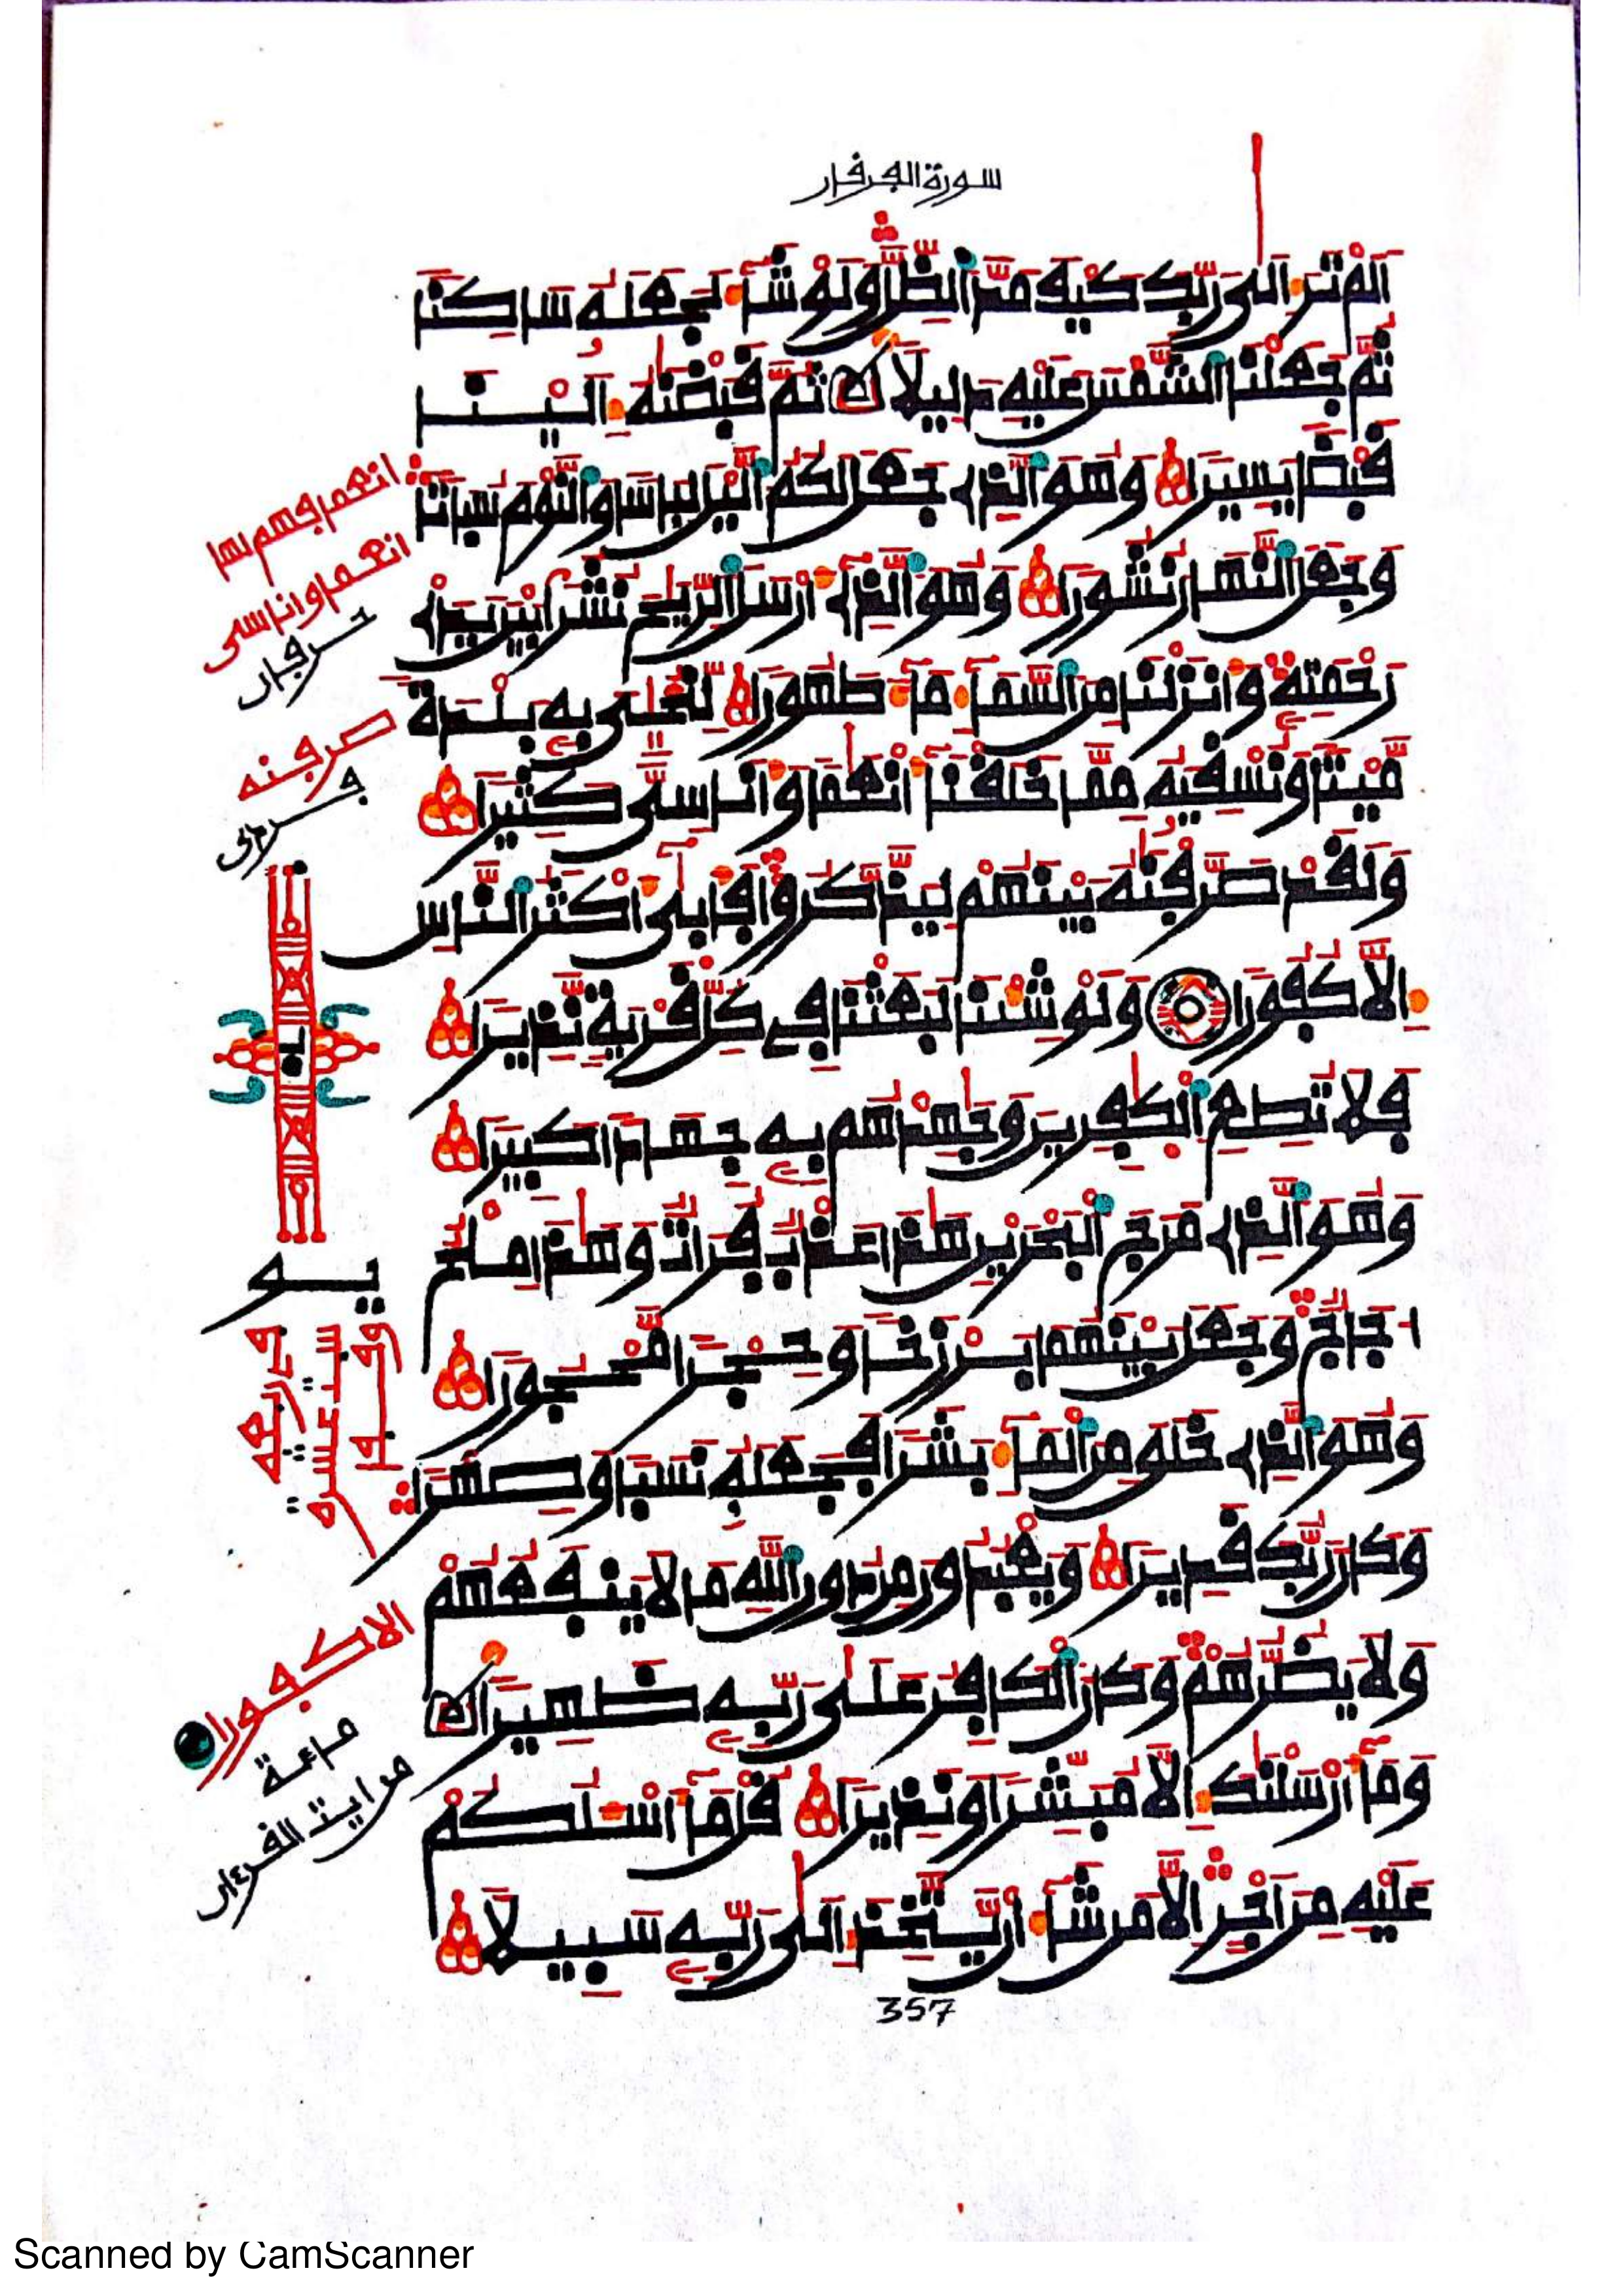 سورة الفرقان
اَلَمْ تَرَ اِلَىٰ رَبِّكَ كَيْفَ مَدَّ اَلظِّلَّ وَلَوْ شَآءَ لَجَعَلَهُۥ سَاكِنًا
ثُمَّ جَعَلْنَا اَلشَّمْسَ عَلَيْهِ دَلِيلًا ثُمَّ قَبَضْنَٰهُ إِلَيْنَا
قَبْضًا يَسِيرًا وَهُوَ اَلذِے جَعَلَ لَكُمُ اُلَّيْلَ لِبَاسًا وَالنَّوْمَ سُبَاتًا
وَجَعَلَ اَلنَّهَارَ نُشُورًا وَهُوَ اَلذِے أَرْسَلَ اَلرِّيَٰحَ نُشُرًا بَيْنَ يَدَےْ
رَحْمَتِهِ وَأَنزَلْنَا مِنَ اَلسَّمَآءِ مَآءً طَهُورًا لِّنُحْـِۧيَ بِهِۦ بَلْدَةً
مَّيْتًا وَنُسْقِيَهُ مِمَّا خَلَقْنَآ أَنْعَٰمًا وَأَنَاسِيَّ كَثِيرًا
وَلَقَدْ صَرَّفْنَٰهُ بَيْنَهُمْ لِيَذَّكَّرُوا فَأَبَىٰٓ أَكْثَرُ اُلنَّاسِ
إِلَّا كُفُورًا وَلَوْ شِئْنَا لَبَعَثْنَا فِے كُلِّ قَرْيَةٍ نَّذِيرًا
فَلَا تُطِعِ اِلْكَٰفِرِينَ وَجَٰهِدْهُم بِهِۦ جِهَادًا كَبِيرًا
وَهُوَ اَلذِے مَرَجَ اَلْبَحْرَيْنِ هَٰذَا عَذْبٌ فُرَاتٌ وَهَٰذَا مِلْحٌ
اُجَاجٌ وَجَعَلَ بَيْنَهُمَا بَرْزَخًا وَحِجْرًا مَّحْجُورًا
وَهُوَ اَلذِے خَلَقَ مِنَ اَلْمَآءِ بَشَرًا فَجَعَلَهُۥ نَسَبًا وَصِهْرًا
وَكَانَ رَبُّكَ قَدِيرًا وَيَعْبُدُونَ مِن دُونِ اِللَّهِ مَا لَا يَنفَعُهُمْ
وَلَا يَضُرُّهُمْ وَكَانَ اَلْكَافِرُ عَلَىٰ رَبِّهِۦ ظَهِيرًا
وَمَآ أَرْسَلْنَٰكَ إِلَّا مُبَشِّرًا وَنَذِيرًا قُلْ مَآ أَسْـَٔلُكُمْ
عَلَيْهِ مِنْ أَجْرٍ اِلَّا مَن شَآءَ أَنْ يَّتَّخِذَ إِلَىٰ رَبِّهِۦ سَبِيلًا
357
انعما فهم بها
انعما واناسى
حرفان
صرفنه
الا كفورا
مائة
من ايت القرءان
Scanned by CamScanner